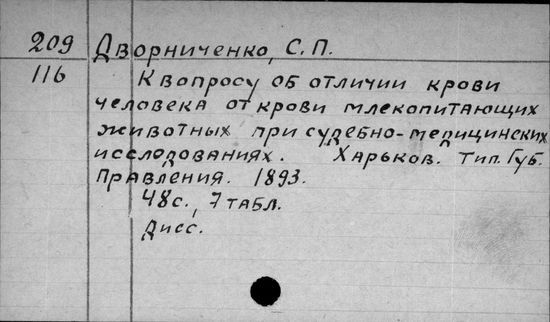 209 Дворниченко, С.П.
116 К вопросу об отличии крови
человека от крови млекопитающих
животных при судебно-медицинских
исследованиях. Харьков. Тип. Губ.
Правления. 1893.
48с., 7 табл.
Дисс.